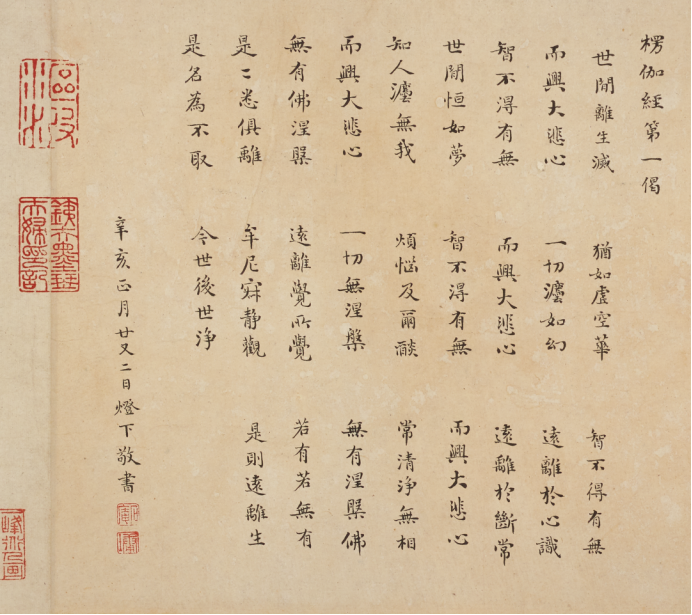 楞伽經第一偈
世間離生滅 猶如虛空華 智不得有無
而興大悲心 一切灋如幻 遠離於心識
智不得有無 而興大悲心 遠離於斷常
世間恒如夢 智不得有無 而興大悲心
知人灋無我 煩惱及爾燄 常清淨無相
而興大悲心 一切無涅槃 無有涅槃佛
無有佛涅槃 遠離覺所覺 若有若無有
是二悉俱離 牟尼寂静觀 是則遠離生
是名為不取 今世後世淨
辛亥正月廿又二日燈下敬書